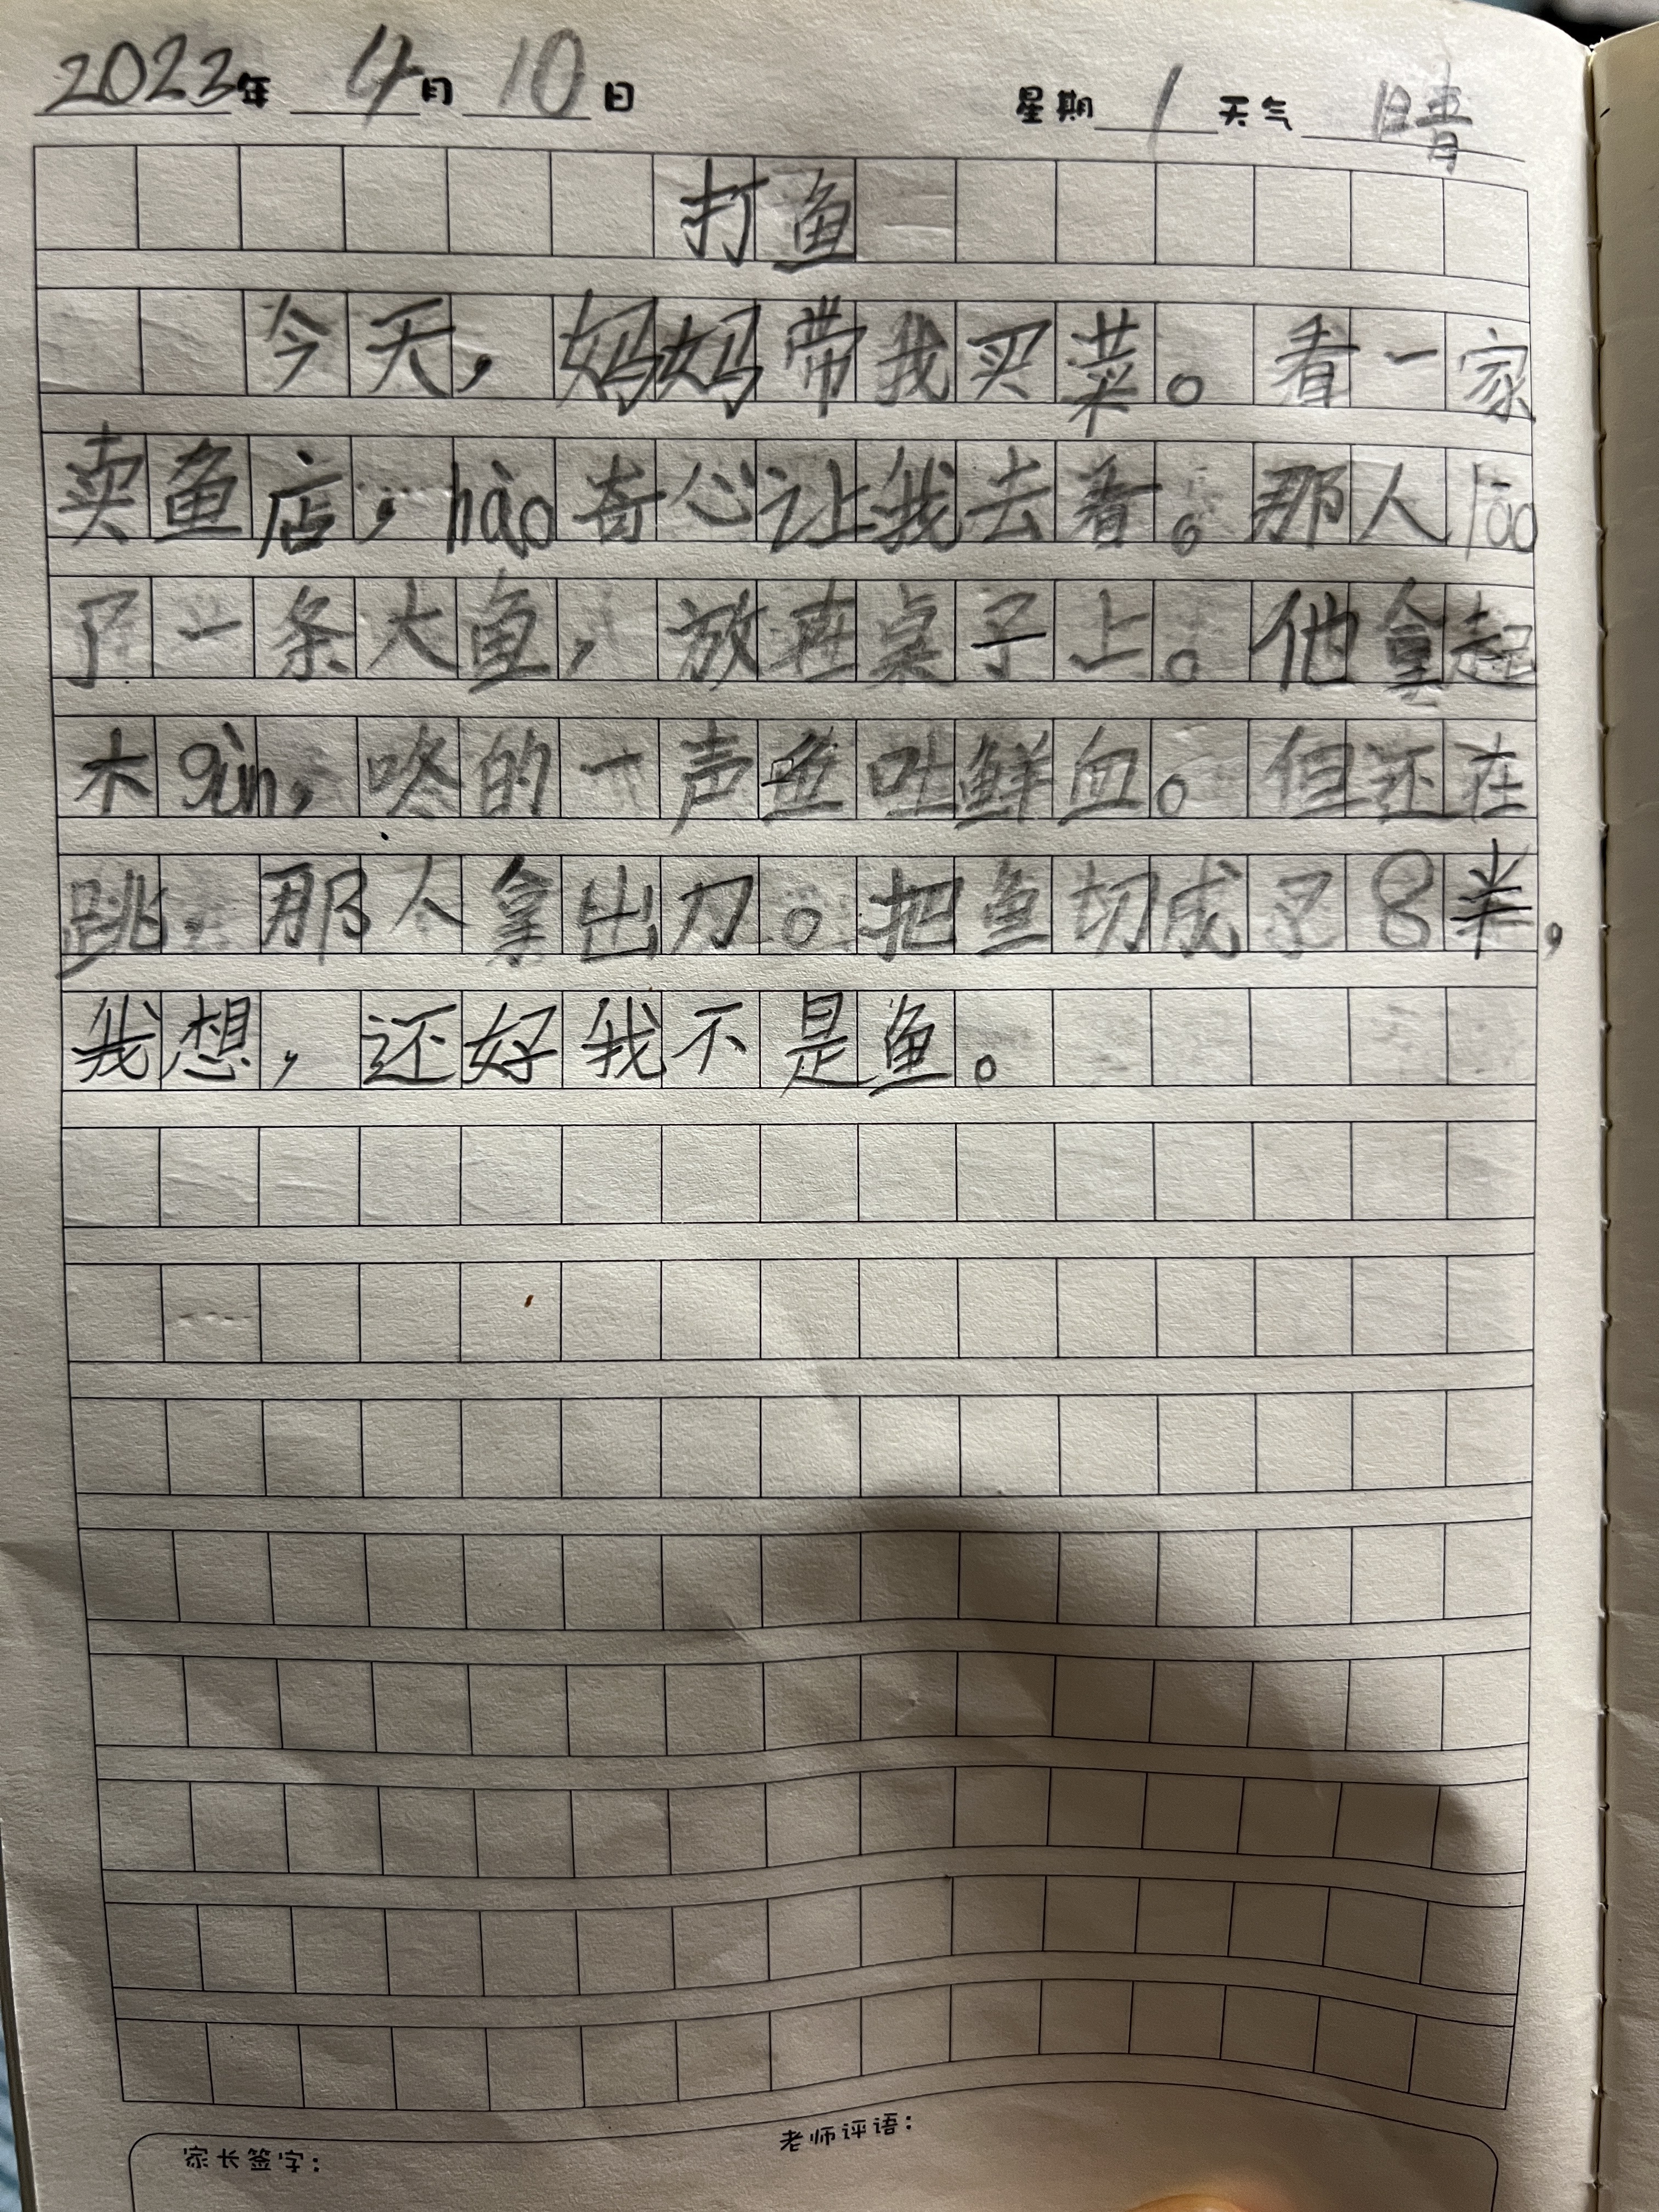 2023年 4月 10日 星期 1 天气 晴
打鱼
今天，妈妈带我买菜。看一家
卖鱼店，hào奇心让我去看。那人lāo
了一条大鱼，放在桌子上。他拿起
木gùn，咚的一声鱼吐鲜血。但还在
跳．那人拿出刀。把鱼切成了8半，
我想，还好我不是鱼。
家长签字： 老师评语：